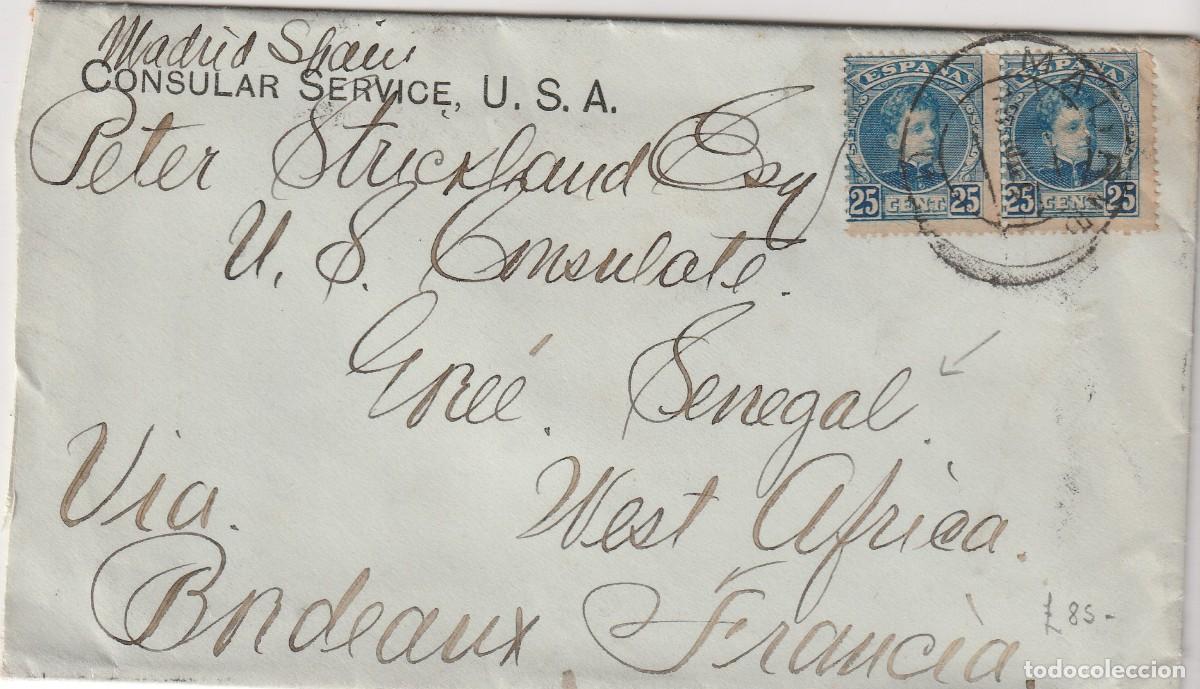 Madrid Spain
CONSULAR SERVICE, U. S. A.
Peter Strickland Esq
U. S. Consulate.
Gorée. Senegal.
Via. West Africa.
Bordeaux. Francia.
ESPAÑA
25 CENT 25
ESPAÑA
25 CENT 25
MADRID
£85-
todocoleccion